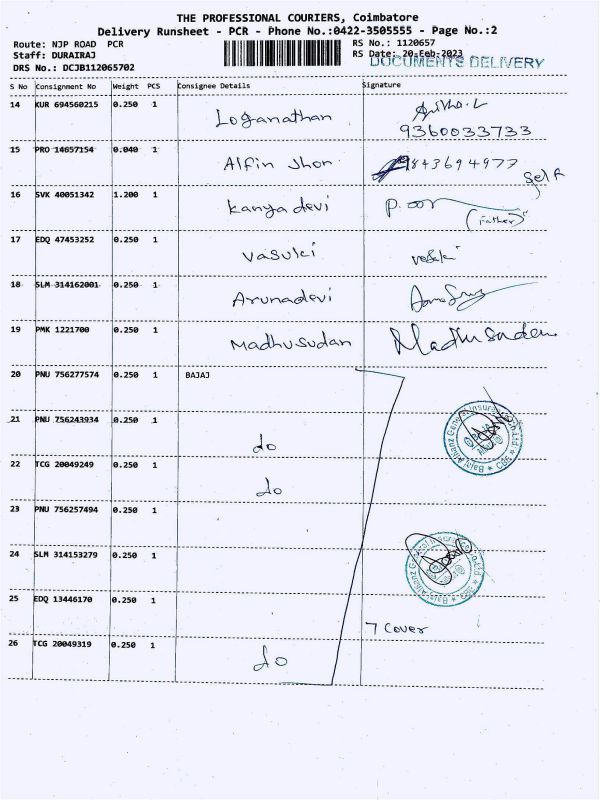 THE PROFESSIONAL COURIERS, Coimbatore
Delivery Runsheet - PCR - Phone No.:0422-3505555 - Page No.:2
Route: NJP ROAD PCR
RS No.: 1120657
Staff: DURAIRAJ
RS Date: 20-Feb-2023
DOCUMENTS DELIVERY
DRS No.: DCJB112065702
S No Consignment No Weight PCS Consignee Details Signature
14 KUR 694560215 0.250 1 Loganathan
9360033733
15 PRO 14657154 0.040 1 Alfin Jhon 9843694977
Self
16 SVK 40051342 1.200 1 Kanyadevi
(Father)
17 EDQ 47453252 0.250 1 Vasuki vasuki
18 SLM 314162001 0.250 1 Arunadevi
19 PMK 1221700 0.250 1 Madhusudan Madhusudan
20 PNU 756277574 0.250 1 BAJAJ
21 PNU 756243934 0.250 1 do
Bajaj Allianz General Insurance Co. Ltd. * CBE *
22 TCG 20049249 0.250 1 do
23 PNU 756257494 0.250 1
24 SLM 314153279 0.250 1
25 EDQ 13446170 0.250 1
7 Cover
26 TCG 20049319 0.250 1 do